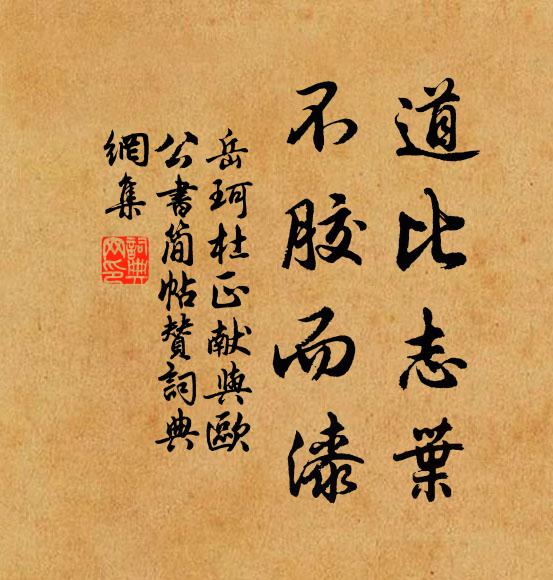 道比志葉
不胶而漆
岳珂杜正献與歐
公書简帖贊詞典
網集
詞典網印